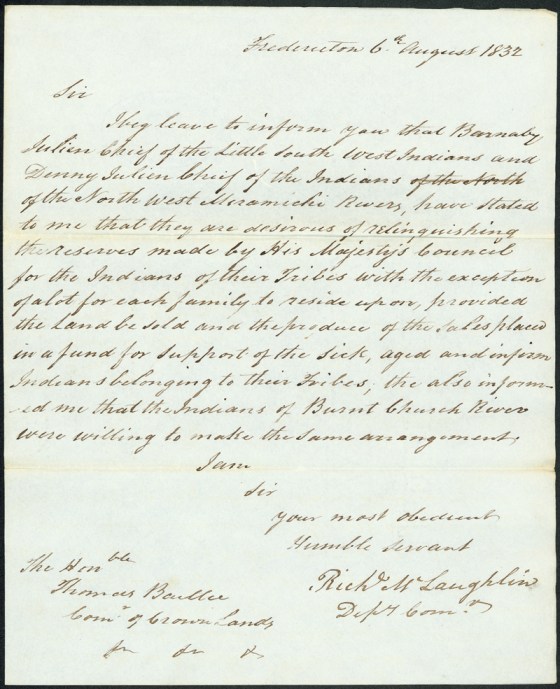 Fredericton 6th August 1832
Sir
I beg leave to inform you that Barnaby
Julien Chief of the Little South West Indians and
Denny Julien Chief of the Indians of the North
of the North West Meramichi Rivers, have stated
to me that they are desirous of relinquishing
the reserves made by His Majesty's Council
for the Indians of their Tribes with the exception
of a lot for each family to reside upon, provided
the Land be sold and the produce of the Sales placed
in a fund for support of the Sick, aged and infirm
Indians belonging to their Tribes, the also inform
-ed me that the Indians of Burnt Church River
were willing to make the same arrangement,
I am
Sir
your most obedient
Humble Servant
Richd McLaughlin
Depy Comr
The Honble
Thomas Baillie
Comr of Crown Lands